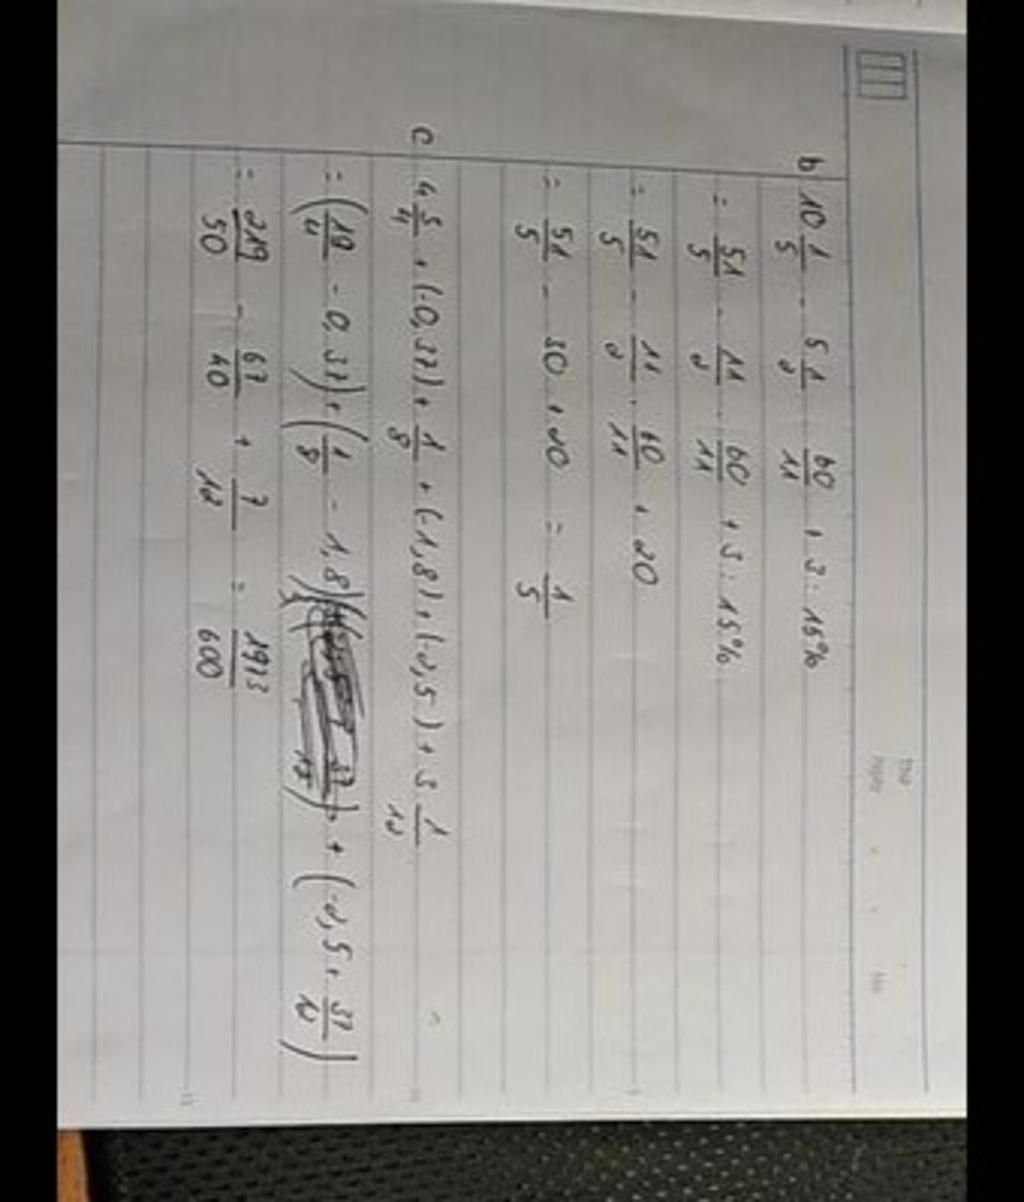 b 10 1/5 - 5 1/2 · 60/11 + 3 : 15%
= 51/5 - 11/2 · 60/11 + 3 : 15%
= 51/5 - 11/2 · 60/11 + 20
= 51/5 - 30 + 20 = 1/5
c 4 5/4 + (-0,37) + 1/8 + (-1,8) + (-2,5) + 3 1/12
= (19/4 - 0,37) + (1/8 - 1,8) + (-2,5 + 37/12)
= 219/50 - 67/40 + 7/12 = 1973/600